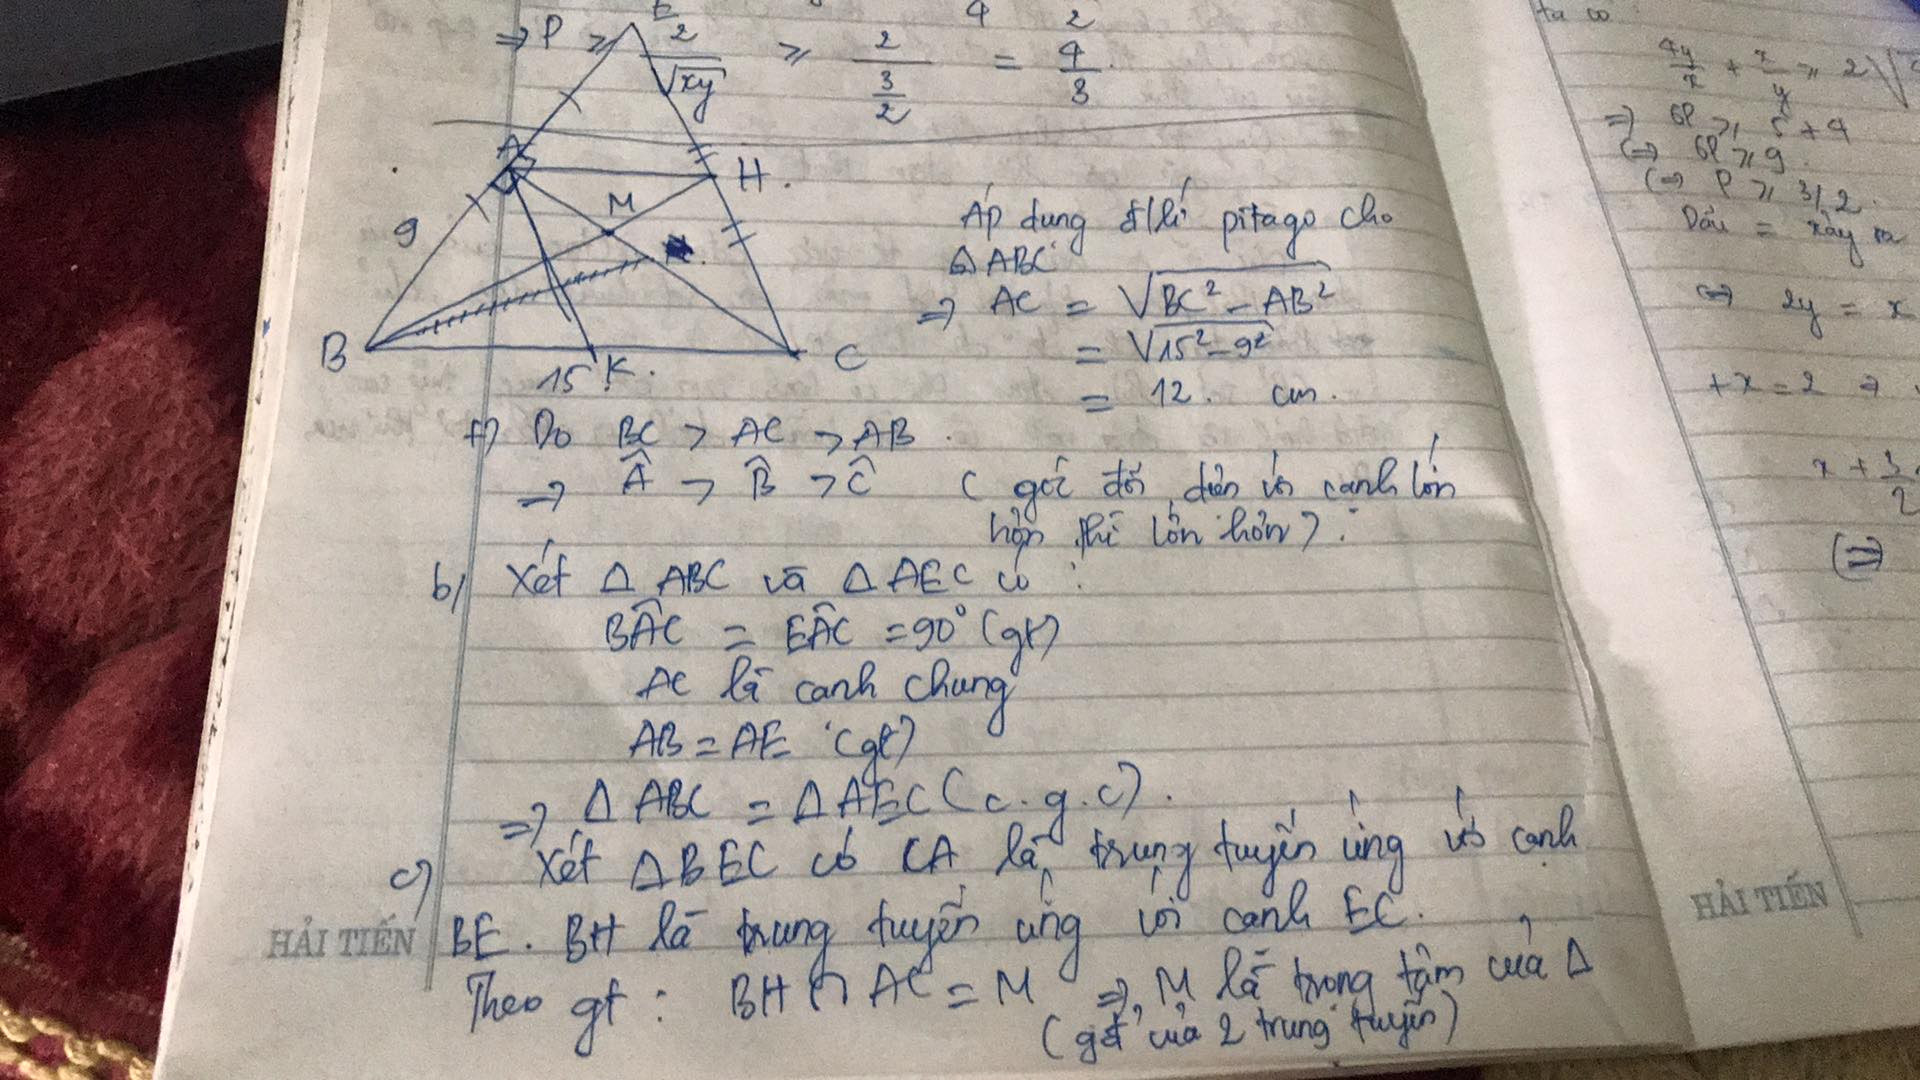 4 2
⇒ P ≥ 2/√xy ≥ 2/(3/2) = 4/3.
E
A
H.
M
9
B
C
15 K.
Áp dụng đ/lí pitago cho
△ABC
⇒ AC = √BC² - AB²
= √15² - 9²
= 12. cm.
+) Do BC > AC > AB.
⇒ Â > B̂ > Ĉ ( góc đối diện với cạnh lớn
hơn thì lớn hơn).
b) Xét △ ABC và △ AEC có :
BÂC = EÂC = 90° (gt)
AC là cạnh chung
AB = AE (gt)
⇒ △ ABC = △ AEC (c.g.c).
c) Xét △BEC có CA là trung tuyến ứng với cạnh
BE. BH là trung tuyến ứng với cạnh EC.
Theo gt : BH ∩ AC = M ⇒ M là trọng tâm của △
(gđ của 2 trung tuyến)
HẢI TIẾN
ta có
4y/x + x/y ≥ 2√
⇒ 6P ≥ 5 + 4
(⇒ 6P ≥ 9.
(⇒ P ≥ 3/2.
Dấu = xảy ra
⇔ 2y = x
+ x = 2 ⇒
(⇒
HẢI TIẾN